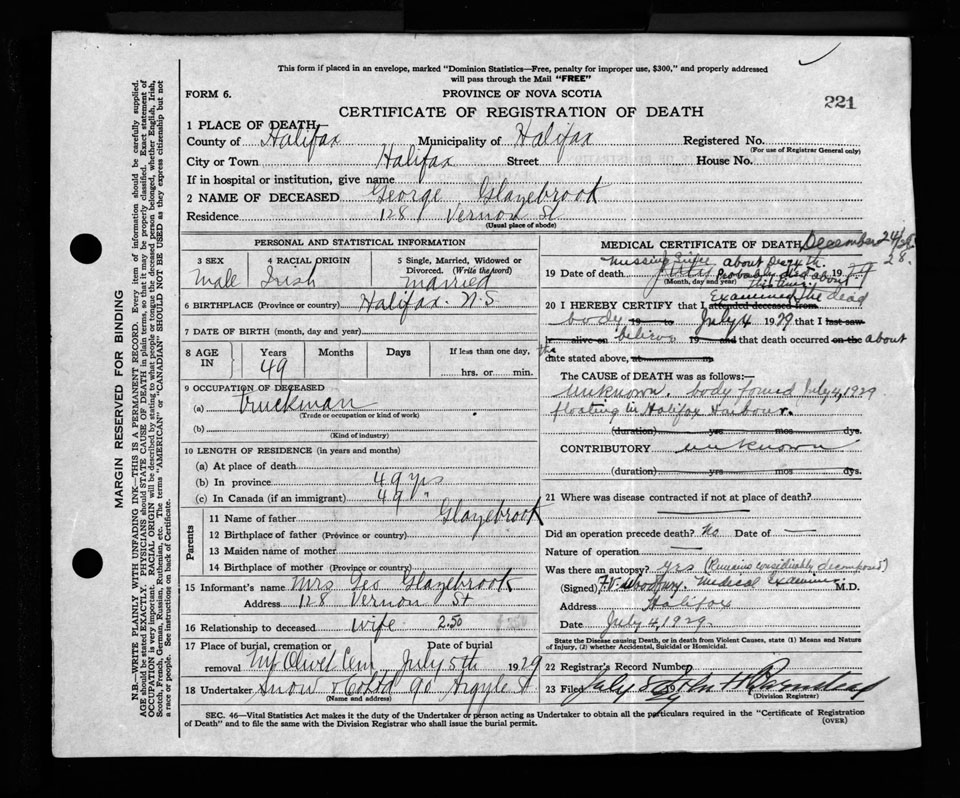 This form if placed in an envelope, marked "Dominion Statistics—Free, penalty for improper use, $300," and properly addressed
will pass through the Mail "FREE"
FORM 6.
PROVINCE OF NOVA SCOTIA
221
CERTIFICATE OF REGISTRATION OF DEATH
1 PLACE OF DEATH,
County of Halifax Municipality of Halifax Registered No.
(For use of Registrar General only)
City or Town Halifax Street House No.
If in hospital or institution, give name
2 NAME OF DECEASED George Glazebrook
Residence 128 Vernon St
(Usual place of abode)
PERSONAL AND STATISTICAL INFORMATION
3 SEX
male
4 RACIAL ORIGIN
Irish
5 Single, Married, Widowed or
Divorced. (Write the word)
married
6 BIRTHPLACE (Province or country) Halifax N.S
7 DATE OF BIRTH (month, day and year)
8 AGE
IN
Years
49
Months
Days
If less than one day,
hrs. or min.
9 OCCUPATION OF DECEASED
(a) truckman
(Trade or occupation or kind of work)
(b)
(Kind of industry)
10 LENGTH OF RESIDENCE (in years and months)
(a) At place of death
(b) In province 49 yrs
(c) In Canada (if an immigrant) 49 "
Parents
11 Name of father Glazebrook
12 Birthplace of father (Province or country)
13 Maiden name of mother
14 Birthplace of mother (Province or country)
15 Informant's name Mrs Geo Glazebrook
Address 128 Vernon St
16 Relationship to deceased wife 2.50
17 Place of burial, cremation or Date of burial
removal Mt Olivet Cem July 5th 1929
18 Undertaker Snow & Co Ltd 90 Argyle St
(Name and address)
MEDICAL CERTIFICATE OF DEATH
December 24/28
missing since about Dec 24th. 28.
19 Date of death Probably died about
(Month, day and year) this time.
Examined the dead
20 I HEREBY CERTIFY that I attended deceased from
body 19 to July 4 1929 that I last saw
h alive on believe 19 and that death occurred on the about
the date stated above, at m.
The CAUSE OF DEATH was as follows:—
Unknown. body found July 4, 1929
floating in Halifax Harbour.
(duration) yrs mos dys.
CONTRIBUTORY unknown
(duration) yrs mos dys.
21 Where was disease contracted if not at place of death?
Did an operation precede death? No Date of
Nature of operation
Was there an autopsy? Yes (Remains considerably decomposed)
(Signed) F.V. Woodbury. Medical examiner M.D.
Address Halifax
Date July 4, 1929.
State the Disease causing Death, or in death from Violent Causes, state (1) Means and Nature
of Injury, (2) whether Accidental, Suicidal or Homicidal.
22 Registrar's Record Number
23 Filed July
(Division Registrar)
SEC. 46—Vital Statistics Act makes it the duty of the Undertaker or person acting as Undertaker to obtain all the particulars required in the "Certificate of Registration
of Death" and to file the same with the Division Registrar who shall issue the burial permit.
(OVER)
MARGIN RESERVED FOR BINDING
N.B.—WRITE PLAINLY WITH UNFADING INK—THIS IS A PERMANENT RECORD. Every item of information should be carefully supplied.
AGE should be stated EXACTLY. PHYSICIANS should STATE CAUSE OF DEATH in plain terms, so that it may be properly classified. Exact statement of
OCCUPATION is very important. RACIAL ORIGIN will be described by stating to what people or tongue the deceased person belonged, whether English, Irish,
Scotch, French, German, Russian, Ruthenian, etc. The terms "AMERICAN" or "CANADIAN" SHOULD NOT BE USED as they express citizenship but not
a race or people. See instructions on back of Certificate.